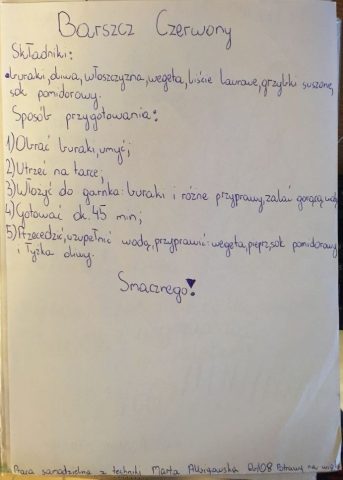 Barszcz Czerwony
Składniki:
• buraki, oliwa, włoszczyzna, wegeta, liście laurowe, grzybki suszone,
sok pomidorowy.
Sposób przygotowania:
1) Obrać buraki, umyć;
2) Utrzeć na tarce;
3) Włożyć do garnka: buraki i różne przyprawy, zalać gorącą wodą
4) Gotować ok. 45 min;
5) Przecedzić, uzupełnić wodą, przyprawić: wegeta, pieprz, sok pomidorowy
i łyżka oliwy.
Smacznego!
Praca samodzielna z techniki Marta Potrawy na